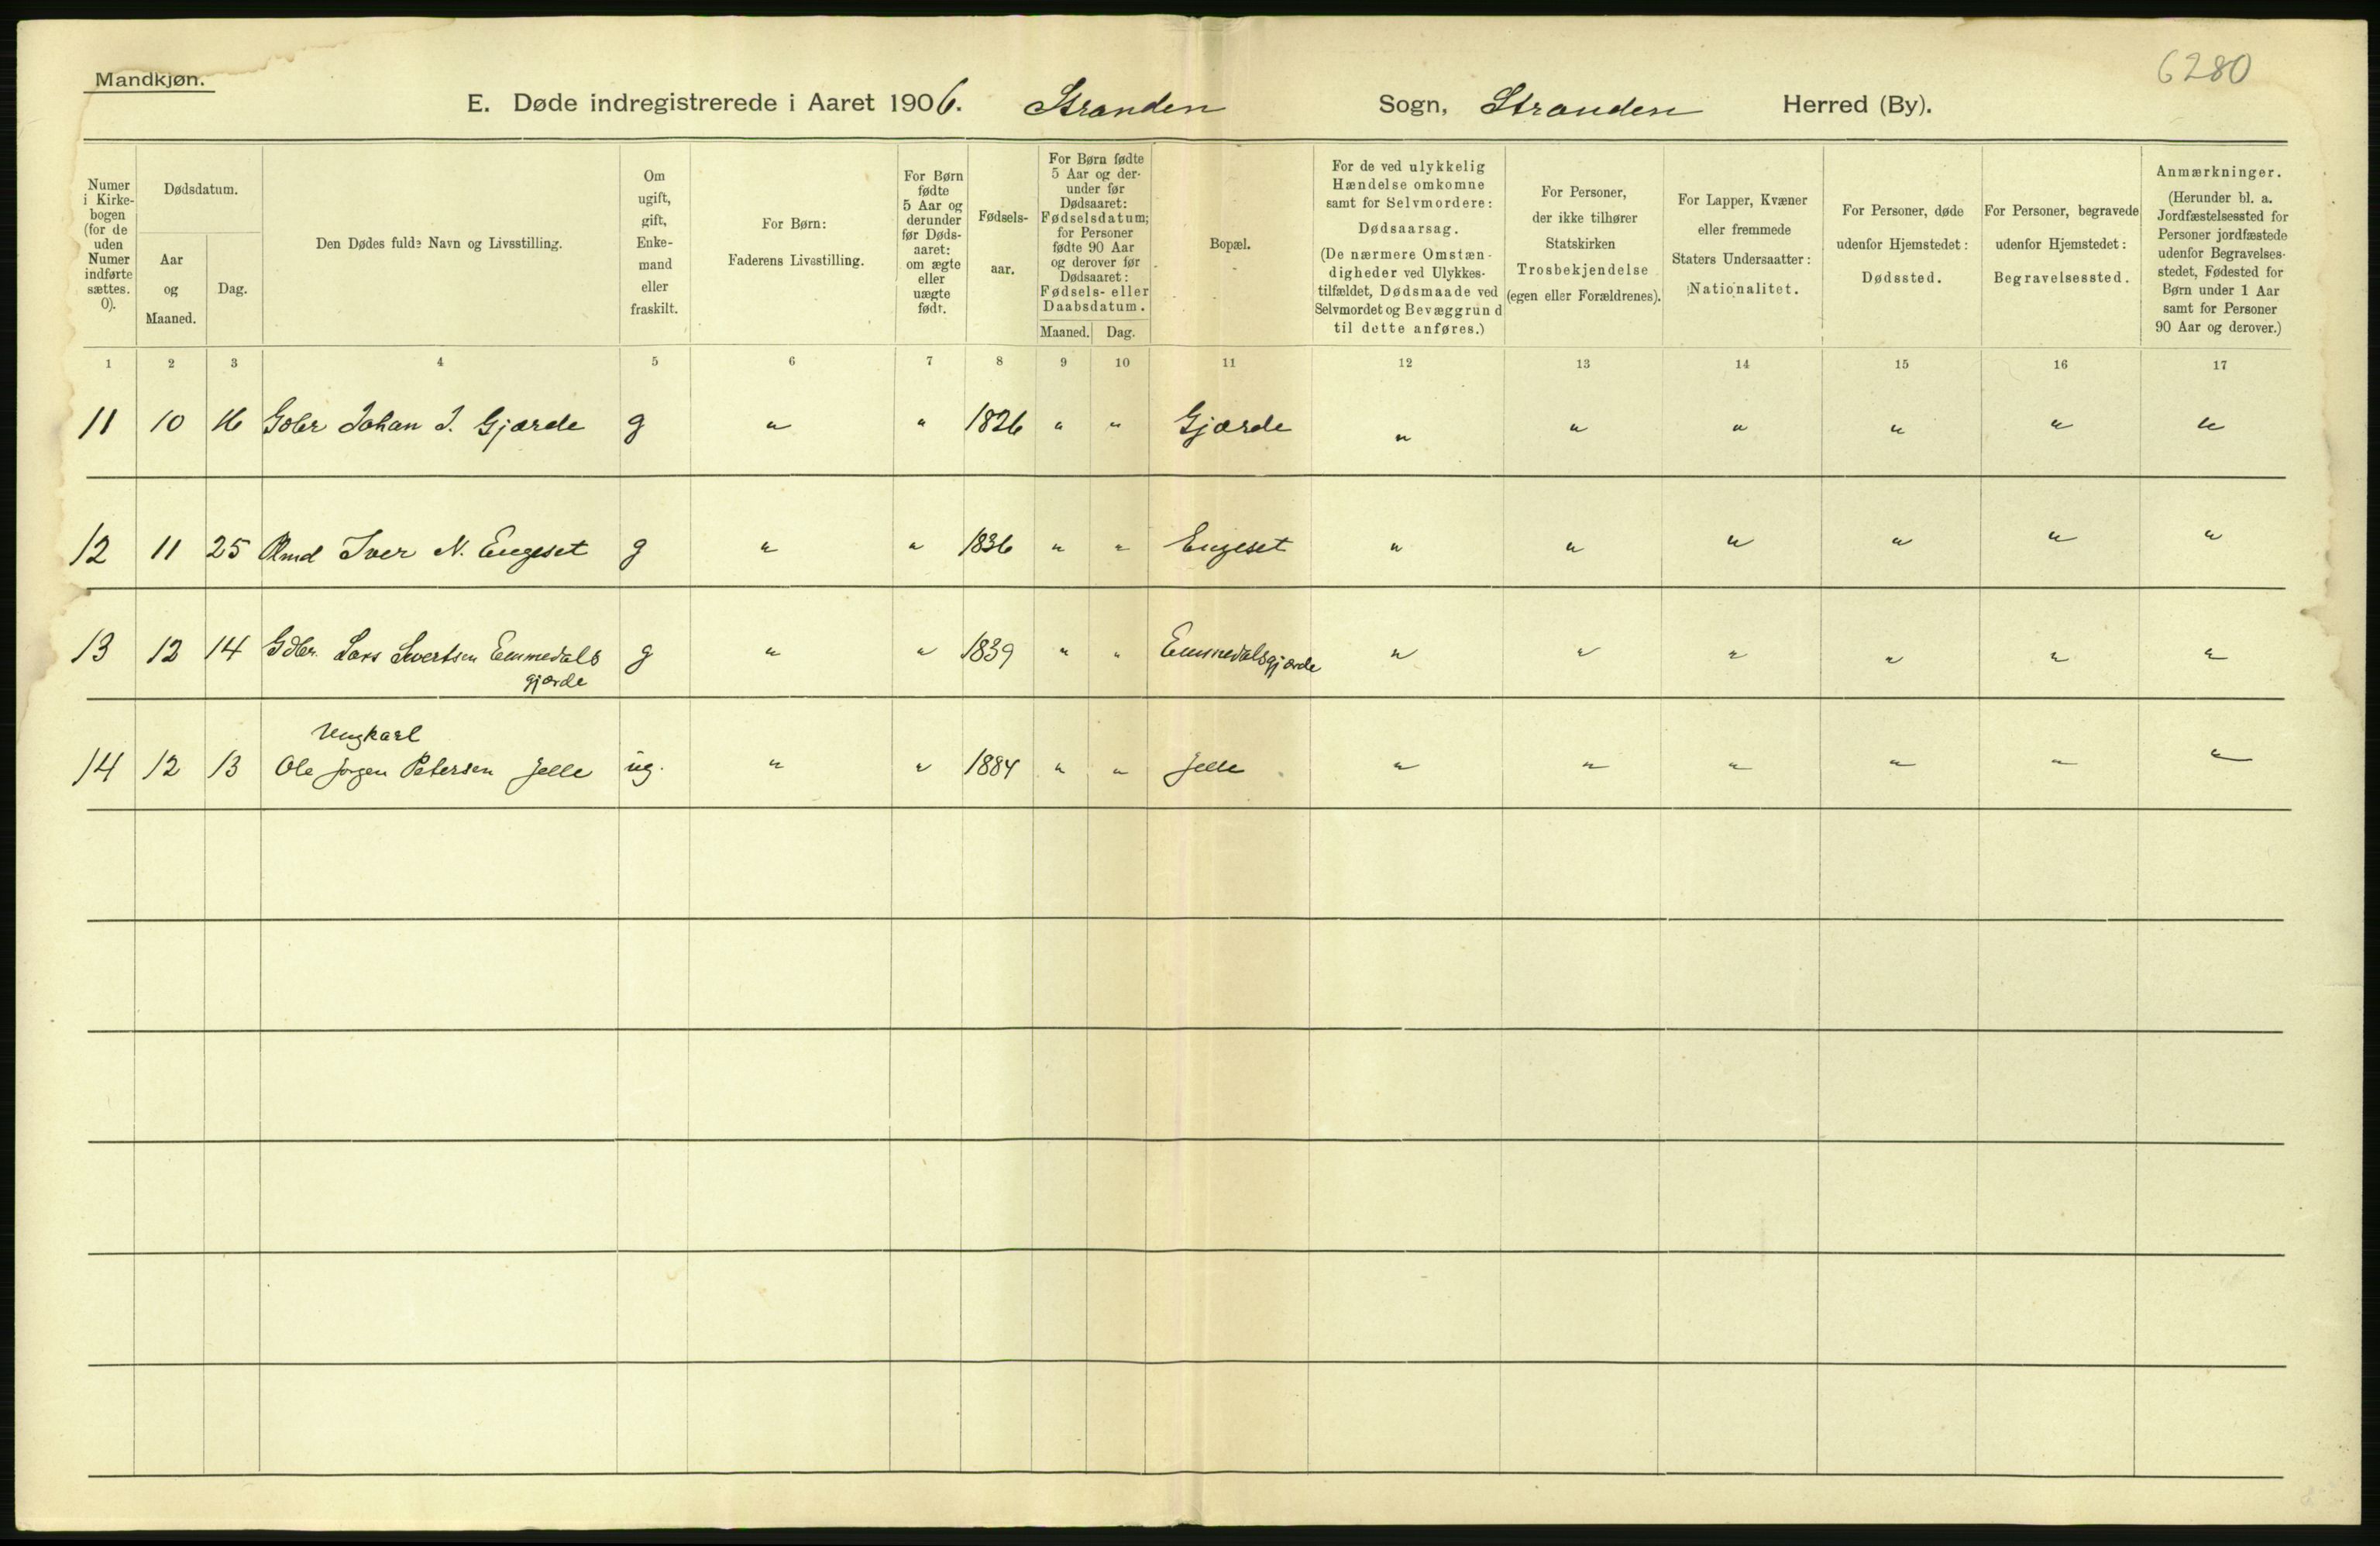 Mandkjøn.
6280
E. Døde indregistrerede i Aaret 1906. Stranden Sogn, Stranden Herred (By).
Numer i Kirkebogen (for de uden Numer indførte sættes. 0).
Dødsdatum.
Aar og Maaned.
Dag.
Den Dødes fulde Navn og Livsstilling.
Om ugift, gift, Enkemand eller fraskilt.
For Børn: Faderens Livsstilling.
For Børn fødte 5 Aar og derunder før Dødsaaret: om ægte eller uægte født.
Fødselsaar.
For Børn fødte 5 Aar og derunder før Dødsaaret: Fødselsdatum; for Personer fødte 90 Aar og derover før Dødsaaret: Fødsels- eller Daabsdatum.
Maaned. Dag.
Bopæl.
For de ved ulykkelig Hændelse omkomne samt for Selvmordere: Dødsaarsag. (De nærmere Omstændigheder ved Ulykkestilfældet, Dødsmaade ved Selvmordet og Bevæggrund til dette anføres.)
For Personer, der ikke tilhører Statskirken Trosbekjendelse (egen eller Forældrenes).
For Lapper, Kvæner eller fremmede Staters Undersaatter: Nationalitet.
For Personer, døde udenfor Hjemstedet: Dødssted.
For Personer, begravede udenfor Hjemstedet: Begravelsessted.
Anmærkninger. (Herunder bl. a. Jordfæstelsessted for Personer jordfæstede udenfor Begravelsesstedet, Fødested for Børn under 1 Aar samt for Personer 90 Aar og derover.)
1 2 3 4 5 6 7 8 9 10 11 12 13 14 15 16 17
11 10 16 Gdbr Johan J. Gjærde g " " 1826 " " Gjærde " " " " " "
12 11 25 Iver N. Engeset g " " 1836 " " Engeset " " " " " "
13 12 14 Gdbr. Lars Sivertsen Emmedals g " " 1839 " " Emmedalsgjærde " " " " " "
gjærde
Ungkarl
14 12 13 Ole Jørgen Petersen Jelle ug. " " 1884 " " Jelle " " " " " "